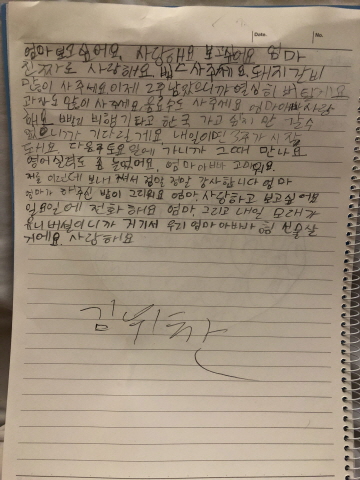 Date. No.
엄마 보고싶어요. 사랑해요 보고싶어요 엄마
진짜로 사랑해요. 사주세요 돼지갈비
많이 사주세요 이제 2주 남았으니까 열심히 버틸게요
과자도 많이 사주세요 음료수도 사주세요 엄마아빠 사랑
해요 빨리 비행기타고 한국 가고 싶지만 갈수
없으니까 기다릴게요 내일이면 3주가 시작
돼요. 다음주 토요일에 가니까 그때 만나요
영어실력도 좀 늘었어요. 엄마아빠 고마워요.
저를 이런데 보내 주셔서 정말 정말 감사합니다 엄마
엄마가 해주신 밥이 그리워요 엄마 사랑하고 보고싶어요
일요일에 전화해요 엄마 그리고 내일 모래가
유니버셜이니까 거기서 우리 엄마아빠 형 선물살
거에요. 사랑해요
김